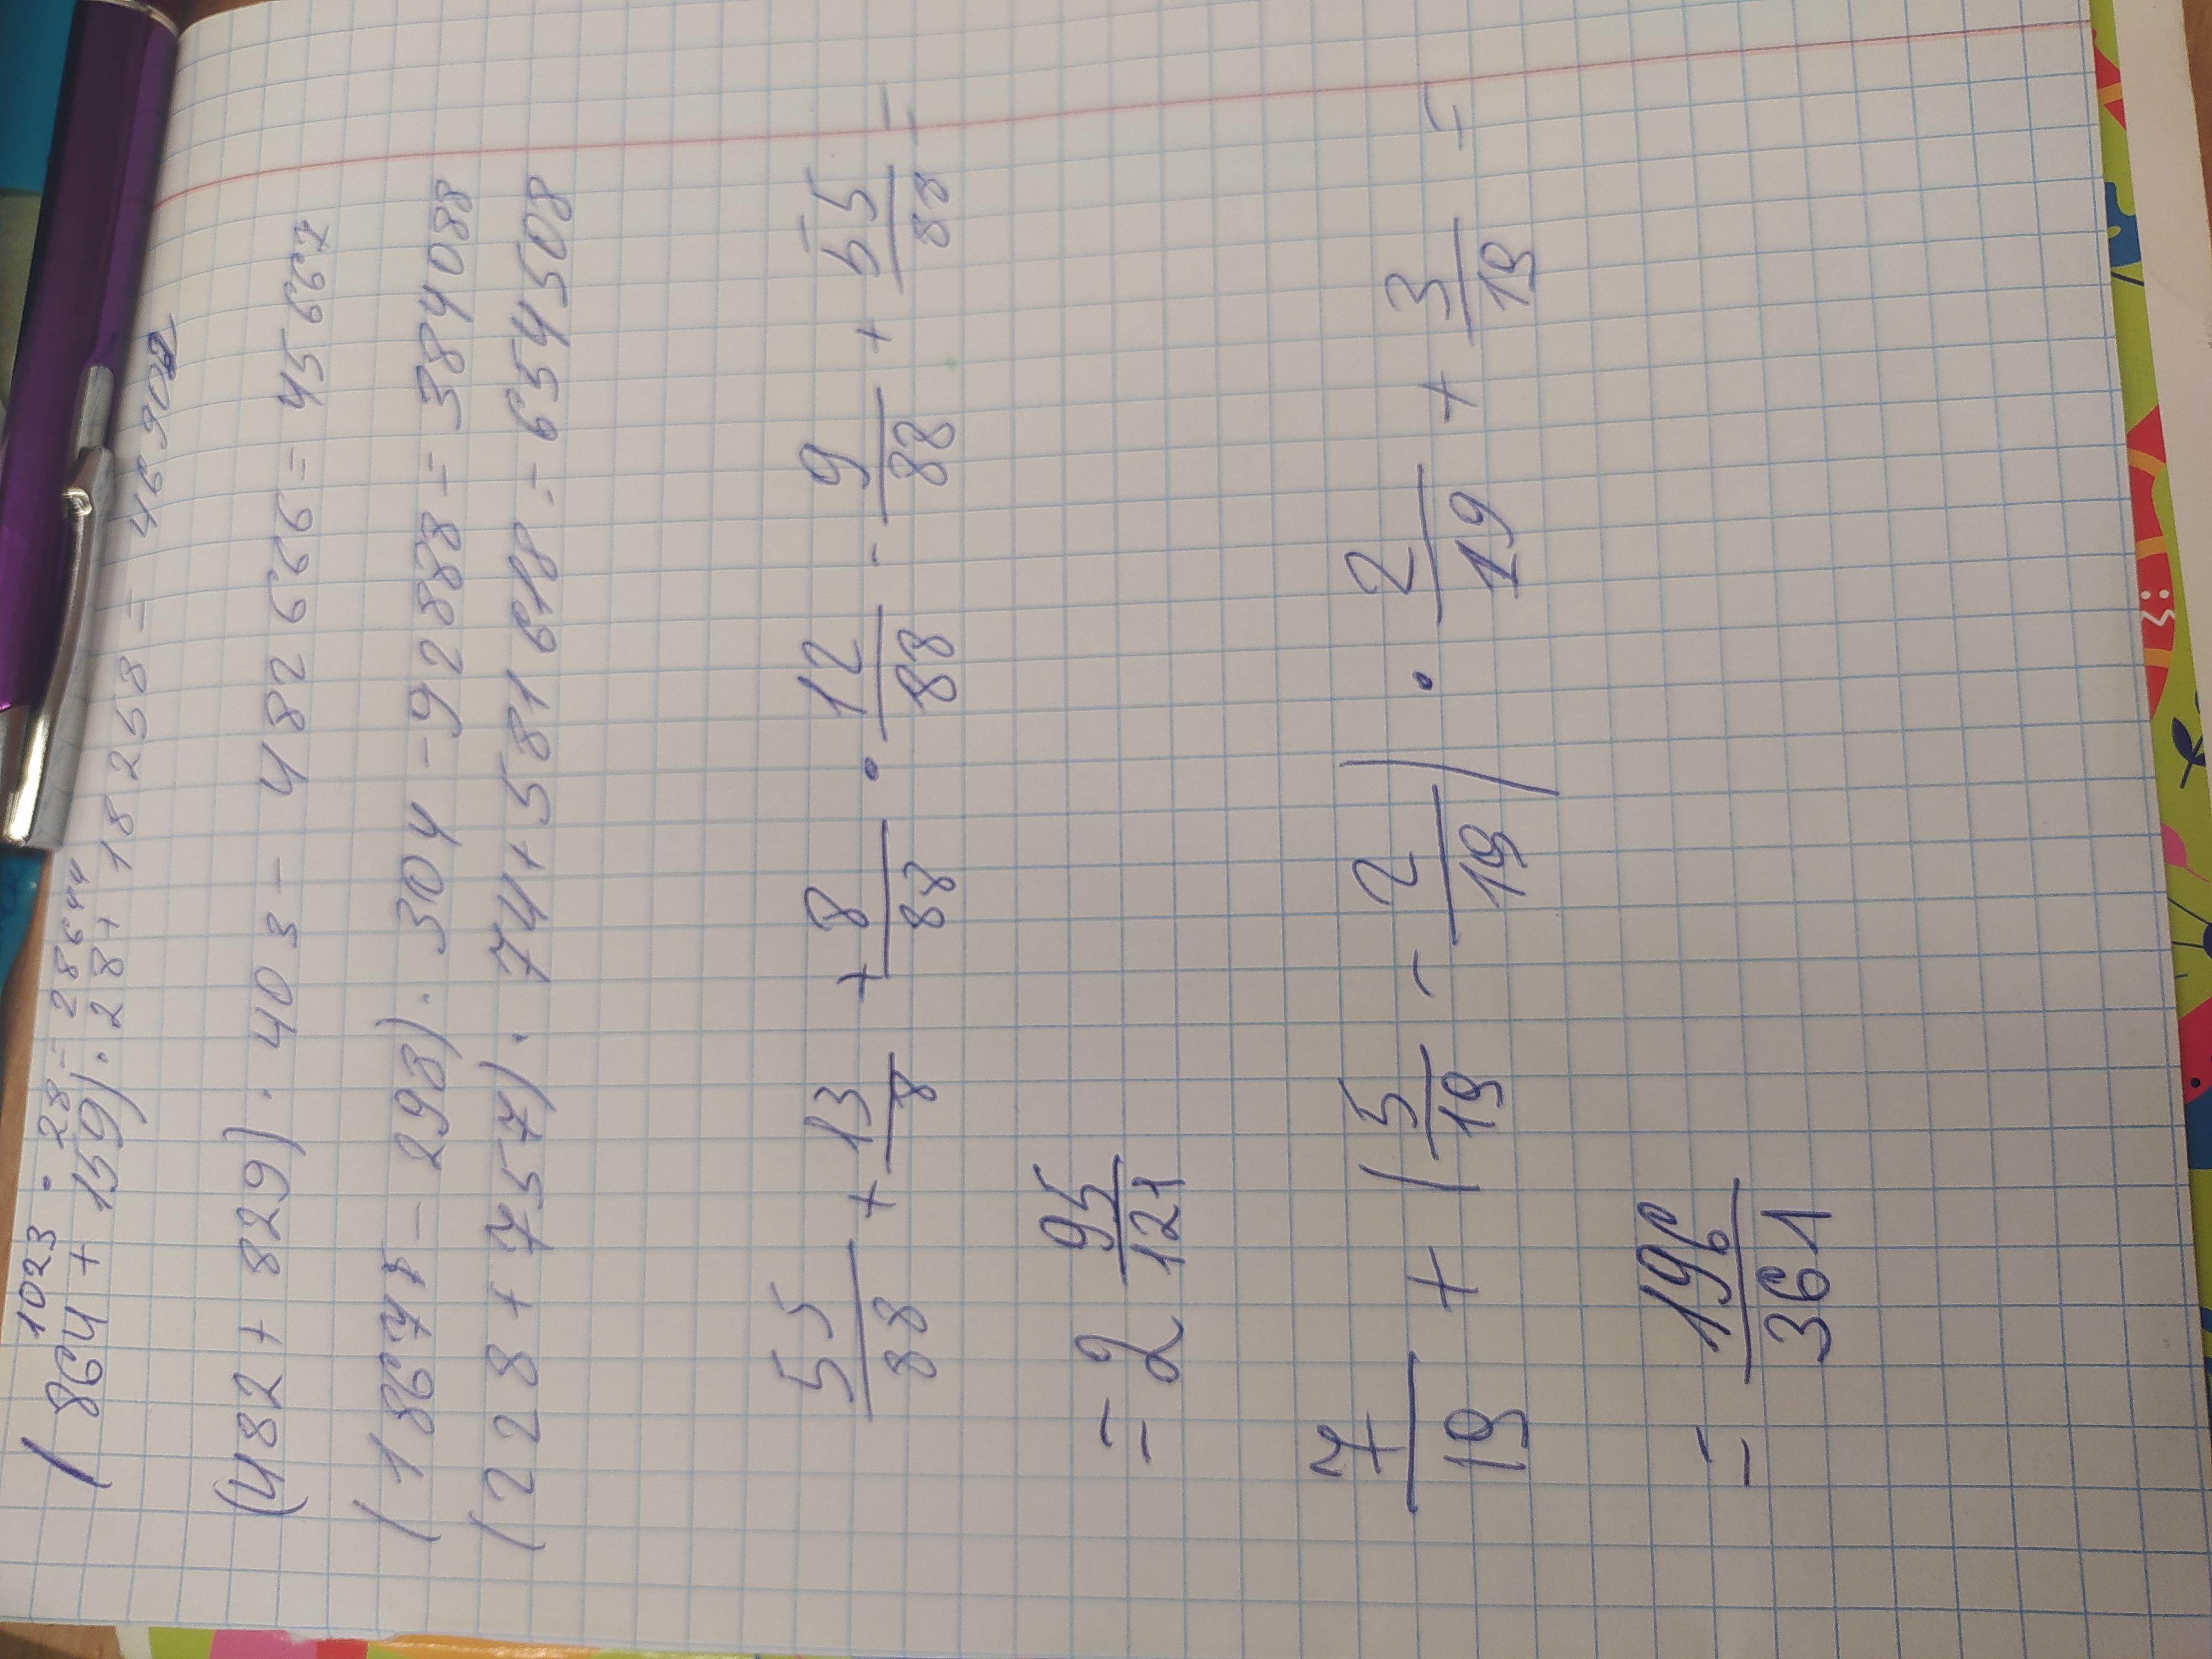 1023 · 28 = 28644
(864 + 159) · 28 + 18258 = 46902
(482 + 829) · 403 - 482666 = 45667
(1867 - 298) · 304 - 92888 = 384088
(228 + 757) · 74 + 581618 = 654508
55/88 + 13/8 + 8/88 · 12/88 - 9/88 + 55/88 =
= 2 95/121
7/19 + (5/19 - 2/19) · 2/19 + 3/19 =
= 196/361